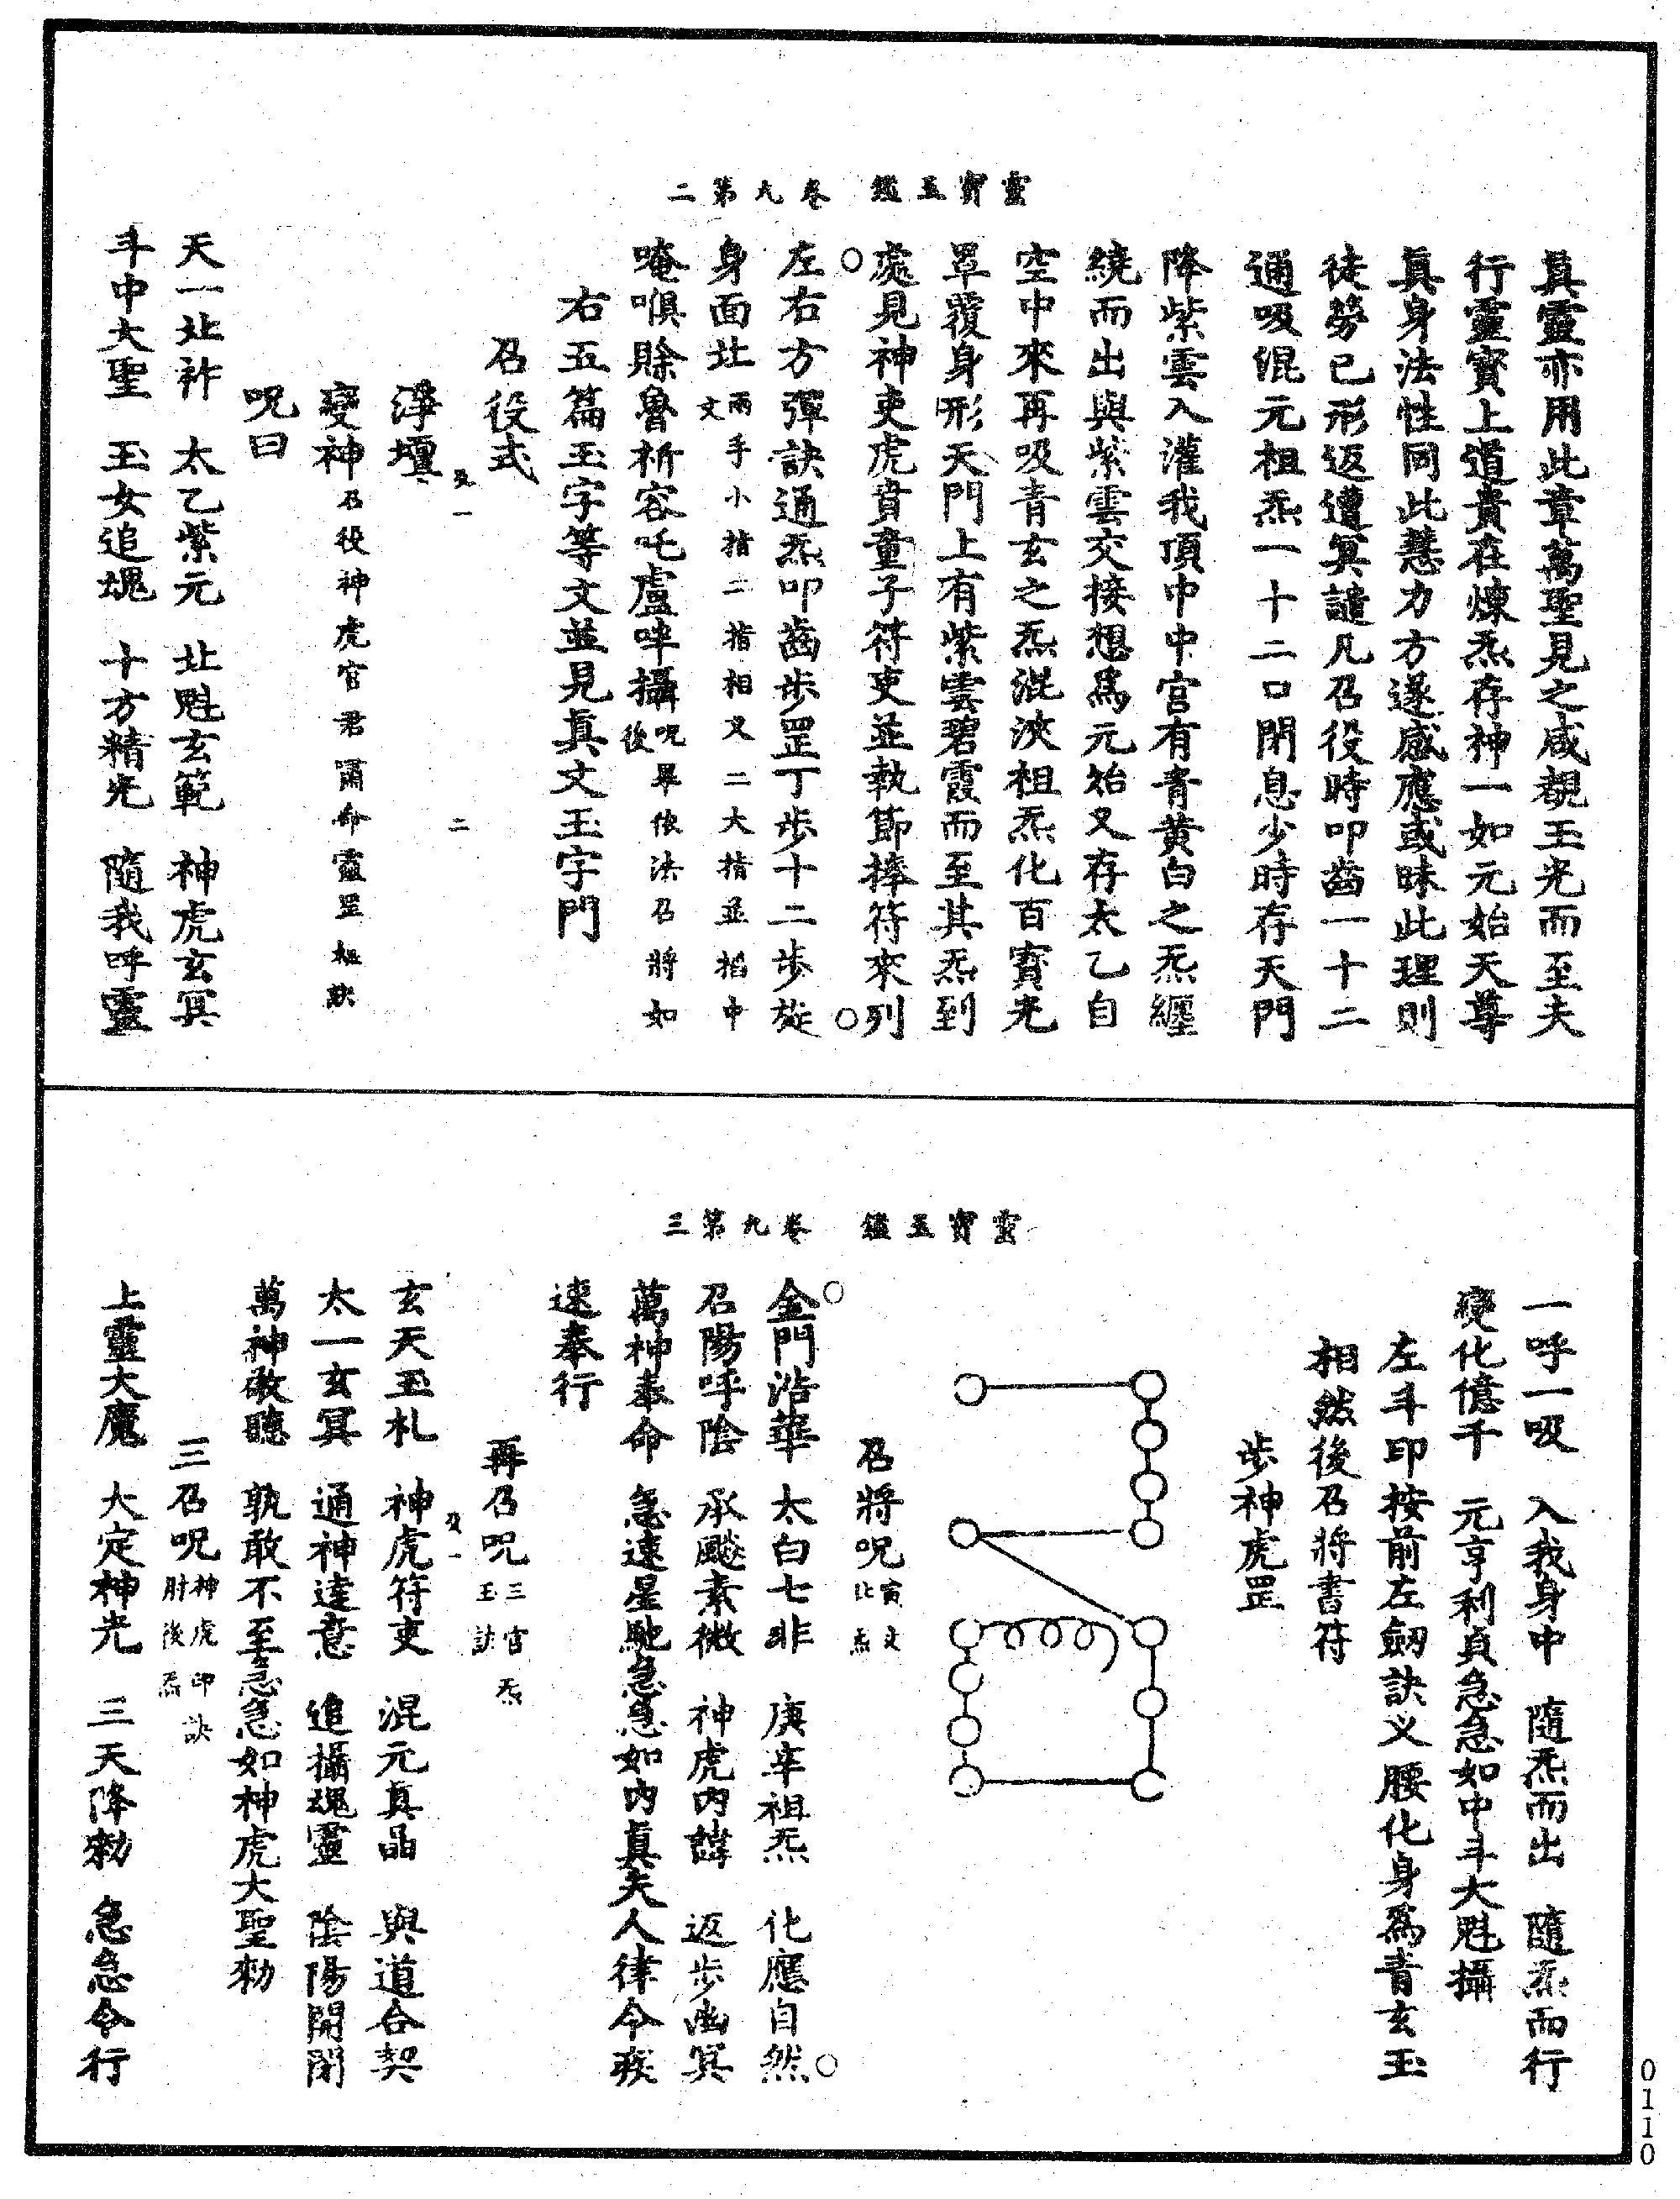 靈寶玉鑑　卷九第二
真靈亦用此章萬聖見之咸覩玉光而至夫
行靈寶上道貴在煉炁存神一如元始天尊
真身法性同此慧力方遂感應或昧此理則
徒勞已形返遭冥譴凡召役時叩齒一十二
通吸混元祖炁一十二口閉息少時存天門
降紫雲入灌我頂中中宮有青黃白之炁纏
繞而出與紫雲交接想爲元始又存太乙自
空中來再吸青玄之炁混浹祖炁化百寶光
罩覆身形天門上有紫雲碧霞而至其炁到
處見神吏虎賁童子符吏並執節捧符來列
左右方彈訣通炁叩齒步罡丁步十二步旋
身面北兩手小指二指相叉二大指並掐中文
唵唄賒魯祈容吒盧吽攝呪畢依法召將如後
右五篇玉字等文並見真文玉字門
召役式
淨壇
變神召役神虎官君嚼命靈罡樞訣
呪曰
天一北祚　太乙紫元　北魁玄範　神虎玄冥
斗中大聖　玉女追魂　十方精光　隨我呼靈
靈寶玉鑑　卷九第三
一呼一吸　入我身中　隨炁而出　隨炁而行
變化億千　元亨利貞急急如中斗大魁攝
左斗印按前左劒訣义腰化身爲青玄玉
相然後召將書符
步神虎罡
召將呪寅文北炁
金門浩華　太白七非　庚辛祖炁　化應自然
召陽呼陰　承飈素微　神虎內諱　返步幽冥
萬神奉命　急速星馳急急如內真夫人律令疾
速奉行
再召呪三官炁玉訣
玄天玉札　神虎符吏　混元真晶　與道合契
太一玄冥　通神達意　追攝魂靈　陰陽開閉
萬神敬聽　孰敢不至急急如神虎大聖勑
三召呪神虎印訣肘後炁
上靈大魔　大定神光　三天降勑　急急令行
0110